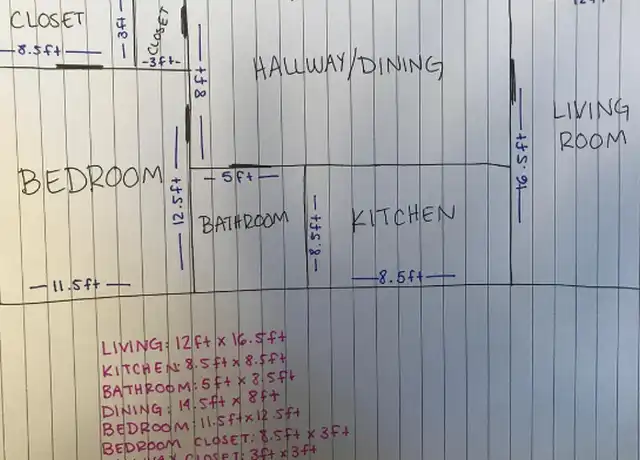 CLOSET
8.5ft
3ft
CLOSET
3ft
8ft
HALLWAY/DINING
12ft
LIVING
ROOM
16.5ft
BEDROOM
12.5ft
11.5ft
5ft
BATHROOM
8.5ft
KITCHEN
8.5ft
LIVING: 12ft x 16.5ft
KITCHEN: 8.5ft x 8.5ft
BATHROOM: 5ft x 8.5ft
DINING: 14.5ft x 8ft
BEDROOM: 11.5ft x 12.5ft
BEDROOM CLOSET: 8.5ft x 3ft
CLOSET: 3ft x 3ft